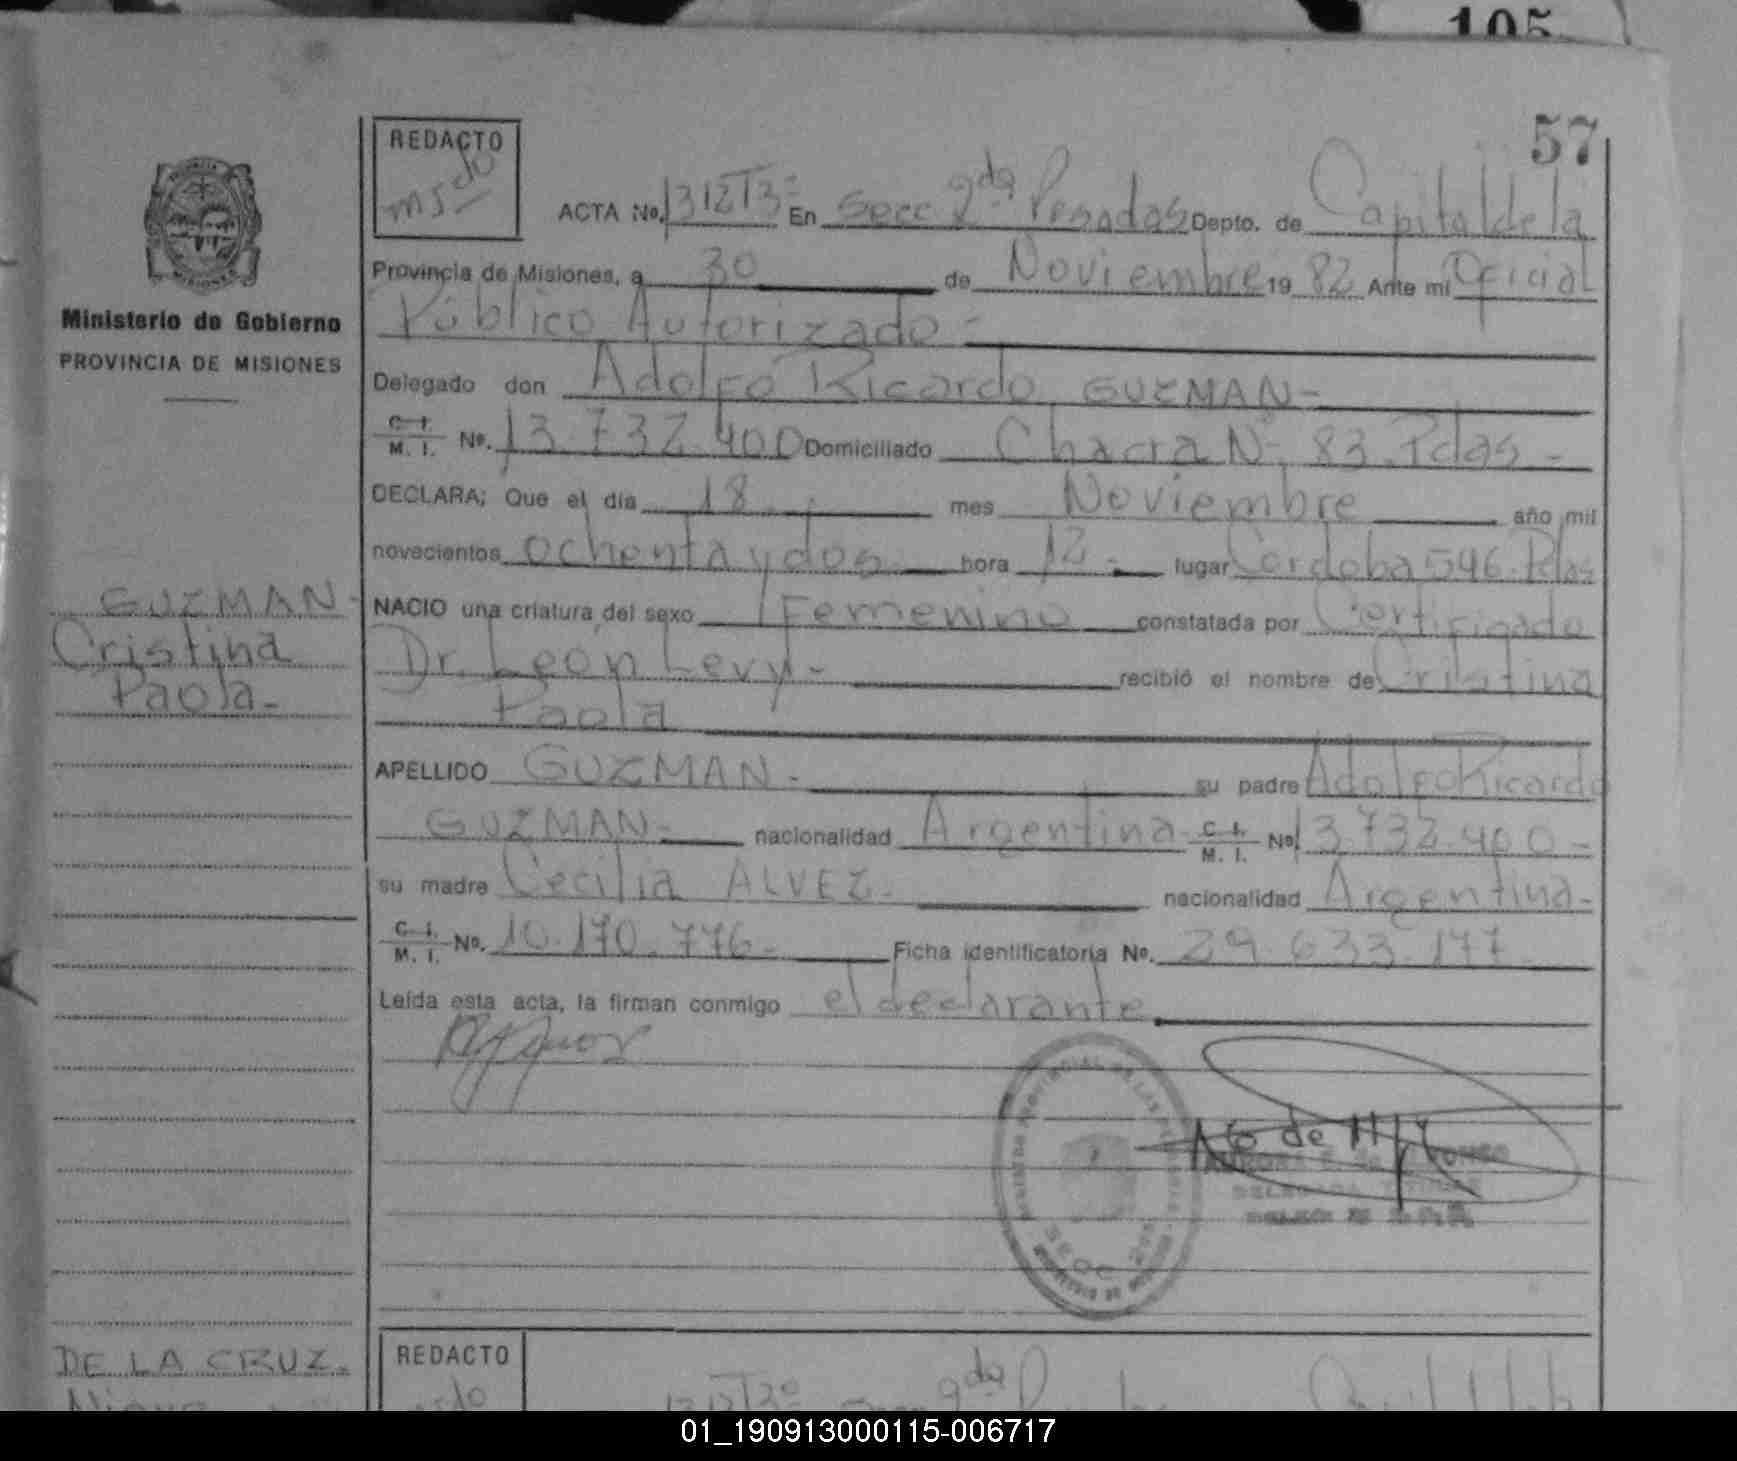 105
57
REDACTO
ms do
ACTA No. 1312T3º En Secc 2da Posadas Depto. de Capital de la
Provincia de Misiones, a 30 de Noviembre 1982 Ante mi Oficial
Público Autorizado-
Delegado don Adolfo Ricardo GUZMAN-
C. I.
M. I. No. 13.732.400 Domiciliado Chacra Nº 83. Pdas-
DECLARA; Que el día 18. mes Noviembre año mil
novecientos ochenta y dos. hora 12- lugar Córdoba 546. Pdas
NACIO una criatura del sexo Femenino constatada por Certificado
Dr. León Levy- recibió el nombre de Cristina
Paola
APELLIDO GUZMAN- su padre Adolfo Ricardo
GUZMAN- nacionalidad Argentina- C. I.
M. I. No 13.732.400-
su madre Cecilia ALVEZ- nacionalidad Argentina-
C. I.
M. I. No. 10.170.776- Ficha identificatoria No. 29.633.177.
Leída esta acta, la firman conmigo el declarante
Ministerio de Gobierno
PROVINCIA DE MISIONES
GUZMAN-
Cristina
Paola-
DE LA CRUZ-
REDACTO
do
1312T3º Secc 2da
01_190913000115-006717